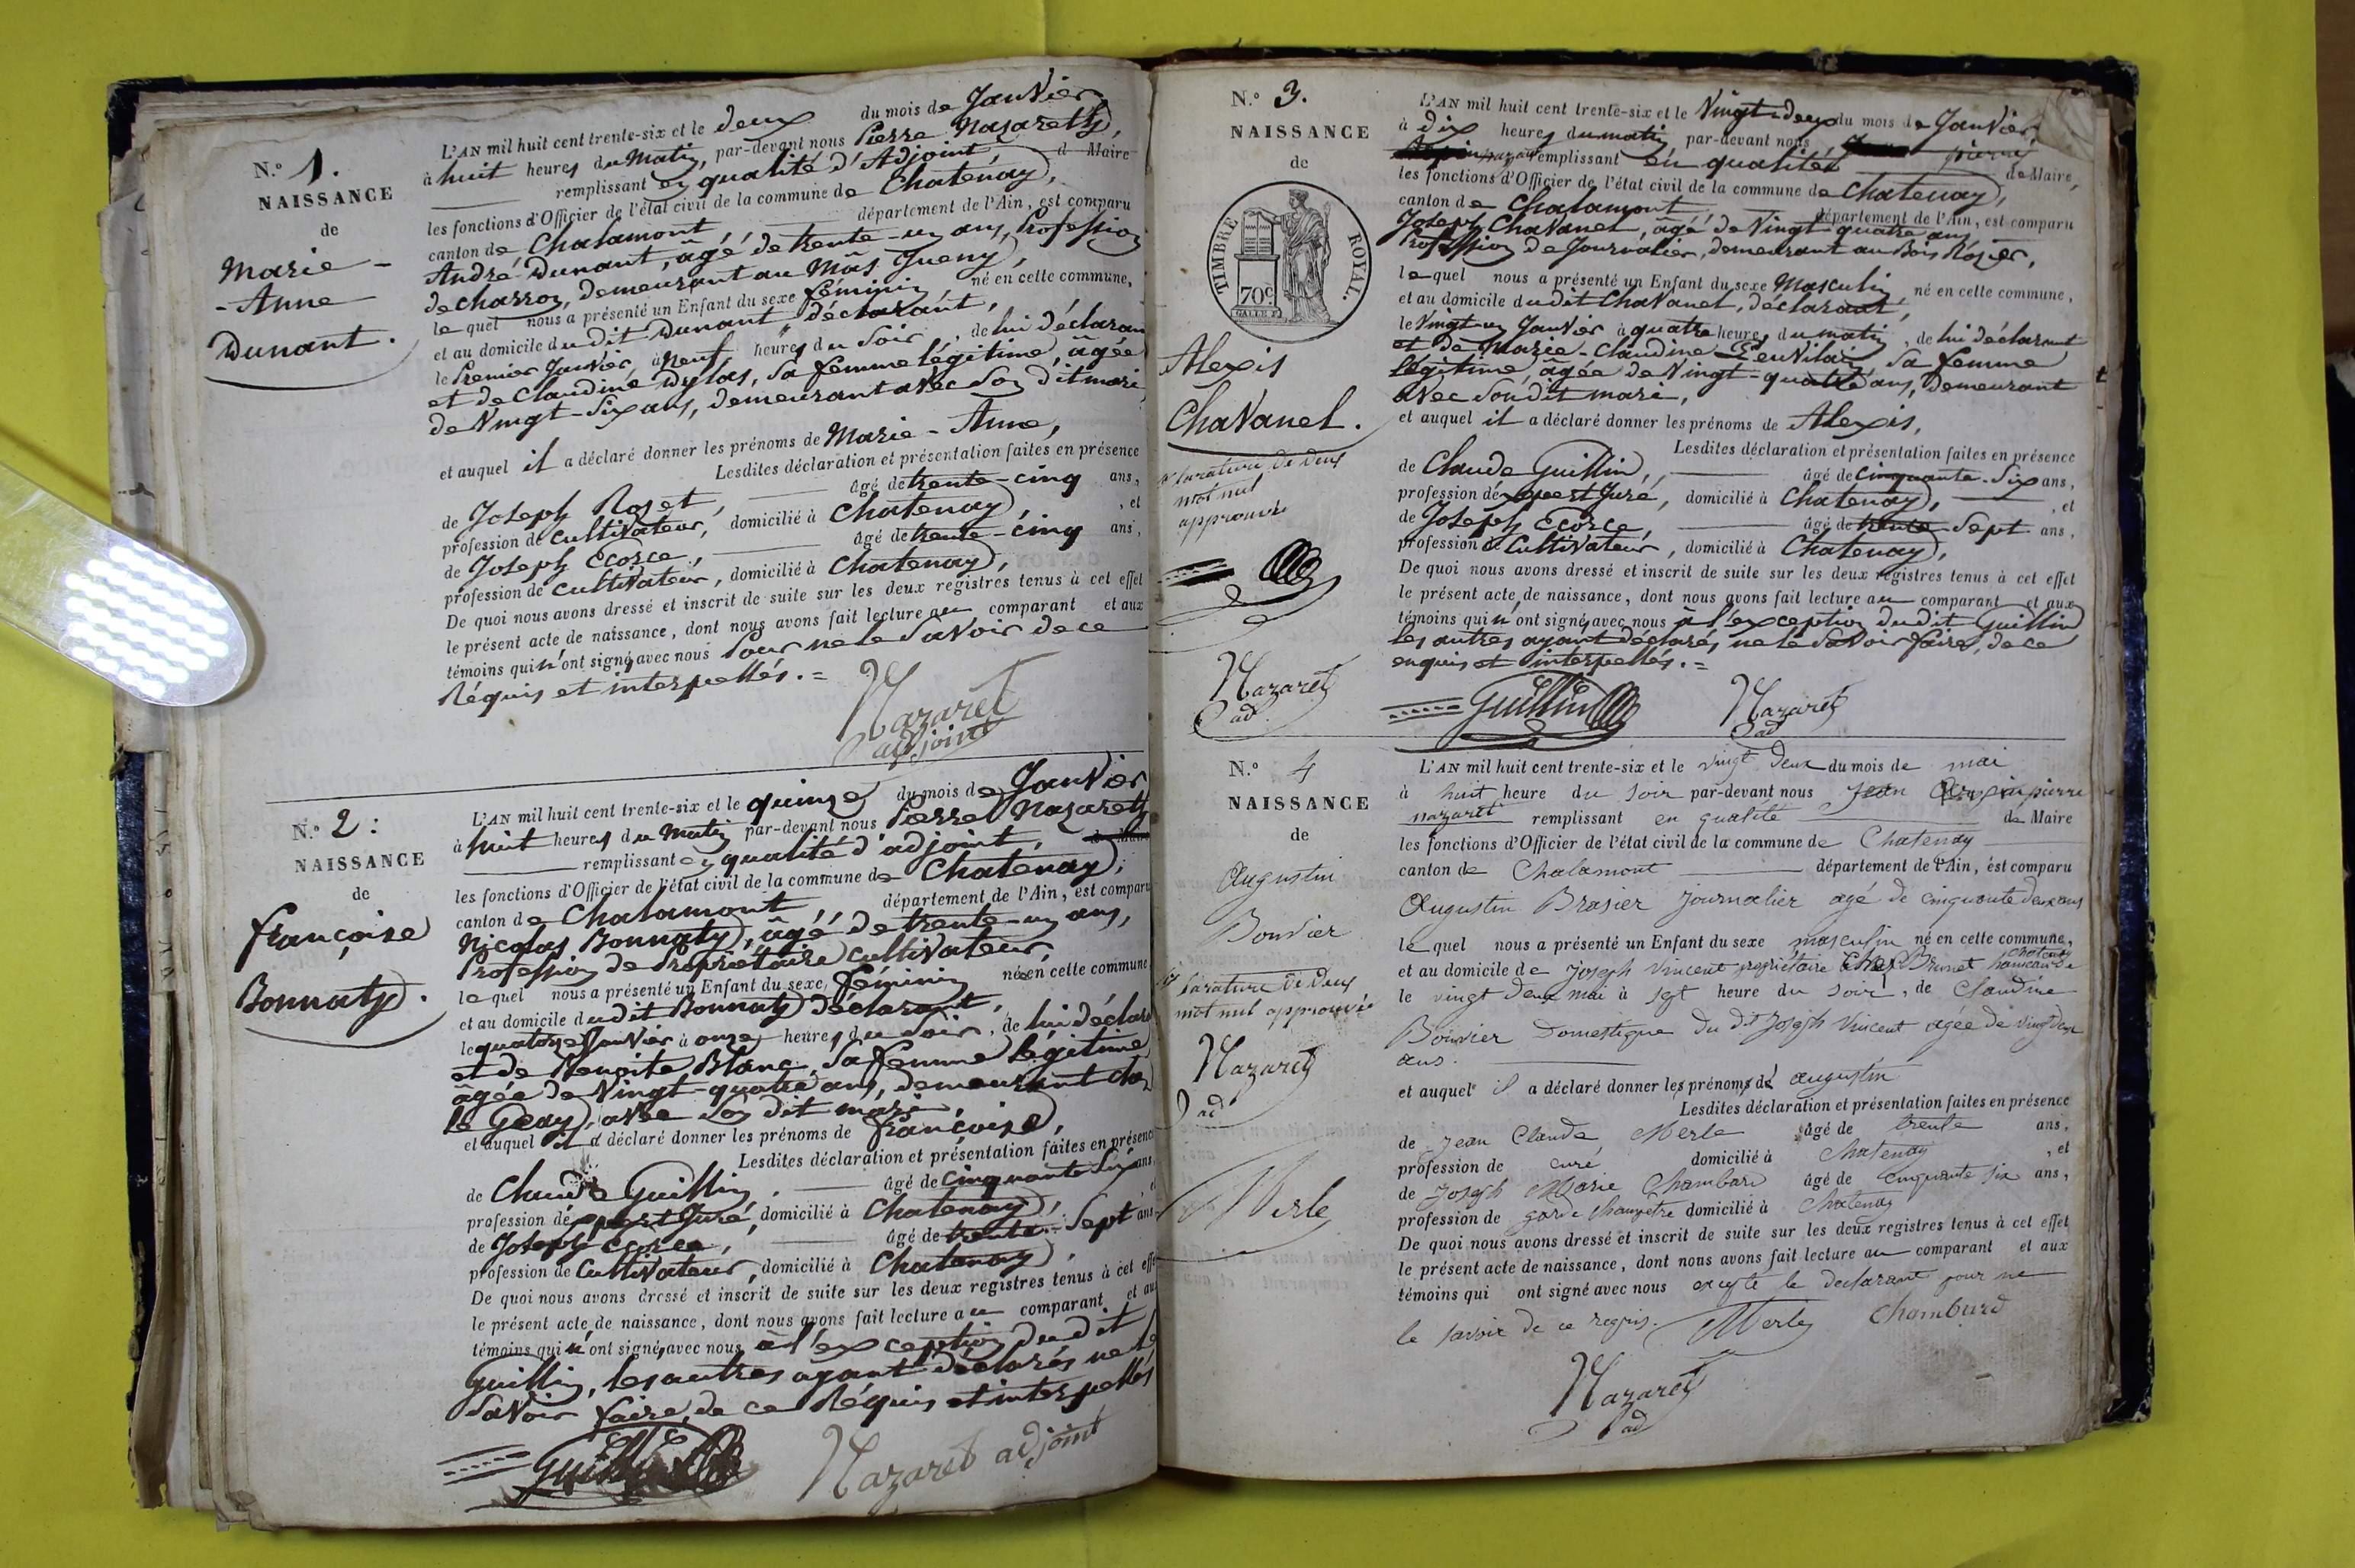 N.º 1.
NAISSANCE
de
Marie -
- Anne
Dunant.
L'AN mil huit cent trente-six et le deux du mois de Janvier
à huit heures du Matin, par-devant nous Pierre Nazareth,
remplissant en qualité d'Adjoint, d Maire
les fonctions d'Officier de l'état civil de la commune de Chatenay,
canton de Chalamont, département de l'Ain, est comparu
André Dunant, âgé de trente-un ans, Profession
de charron, demeurant au Mâs Jueny,
le quel nous a présenté un Enfant du sexe féminin, né en cette commune,
et au domicile dudit Dunant déclarant,
le Premier Janvier, à neuf heures du Soir, de lui déclarant
et de Claudine Dylas, Sa femme légitime, âgée
de Vingt-Six ans, demeurant avec Son dit mari,
et auquel il a déclaré donner les prénoms de Marie-Anne,
Lesdites déclaration et présentation faites en présence
de Joseph Roset, âgé de trente-cinq ans,
profession de Cultivateur, domicilié à Chatenay, et
de Joseph Ecorce, âgé de trente-cinq ans,
profession de Cultivateur, domicilié à Chatenay,
De quoi nous avons dressé et inscrit de suite sur les deux registres tenus à cet effet
le présent acte de naissance, dont nous avons fait lecture au comparant et aux
témoins qui n'ont signé avec nous Pour ne le Savoir de ce
Réquis et interpellés.=
Nazaret
adjoint
N.º 2:
NAISSANCE
de
françoise
Bonnaty.
L'AN mil huit cent trente-six et le quinze du mois de Janvier
à huit heures du Matin par-devant nous Pierre Nazareth
remplissant en qualité d'adjoint, de Maire
les fonctions d'Officier de l'état civil de la commune de Chatenay,
canton de Chalamont, département de l'Ain, est comparu
Nicolas Bonnaty, âgé de trente-un ans,
Profession de Propriétaire Cultivateur,
le quel nous a présenté un Enfant du sexe féminin née en cette commune
et au domicile dudit Bonnaty déclarant,
le quatorze Janvier à onze heures du Soir, de lui déclarant
et de Benoite Blanc, Sa femme légitime
âgée de Vingt-quatre ans, demeurant chez
le Geay, avec Son dit mari,
et auquel il a déclaré donner les prénoms de françoise,
Lesdites déclaration et présentation faites en présence
de Claude Guillin, âgé de cinquante Six ans,
profession d'expert Juré, domicilié à Chatenay, et
de Joseph Ecorce, âgé de trente-Sept ans
profession de Cultivateur, domicilié à Chatenay,
De quoi nous avons dressé et inscrit de suite sur les deux registres tenus à cet effet
le présent acte de naissance, dont nous avons fait lecture au comparant et aux
témoins qui n'ont signé avec nous à l'exception dudit
Guillin, les autres ayant déclarés ne le
Savoir faire, de ce Réquis et interpellés
Guillin Nazaret adjoint
N.º 3.
NAISSANCE
de
TIMBRE ROYAL.
70c
Alexis
Chavanel.
rature de deux
mot nul
approuvé
Nazaret
ad.
L'AN mil huit cent trente-six et le Vingt-deux du mois de Janvier
à dix heures du matin par-devant nous pierre
nazaret remplissant en qualités de Maire,
les fonctions d'Officier de l'état civil de la commune de Chatenay,
canton de Chalamont département de l'Ain, est comparu
Joseph Chavanel, âgé de Vingt quatre ans
Profession de Journalier, demeurant au Bois Rosier,
le quel nous a présenté un Enfant du sexe Masculin, né en cette commune,
et au domicile dudit Chavanel, déclarant,
le Vingt-un Janvier à quatre heures du matin, de lui déclarant
et de Marie-Claudine Genvilain, Sa femme
légitime, âgée de Vingt-quatre ans, demeurant
avec Son dit mari,
et auquel il a déclaré donner les prénoms de Alexis,
Lesdites déclaration et présentation faites en présence
de Claude Guillin, âgé de cinquante-Six ans,
profession d'expert Juré, domicilié à Chatenay, et
de Joseph Ecorce, âgé de trente Sept ans,
profession de Cultivateur, domicilié à Chatenay,
De quoi nous avons dressé et inscrit de suite sur les deux registres tenus à cet effet
le présent acte de naissance, dont nous avons fait lecture au comparant et aux
témoins qui n'ont signé avec nous à l'exception dudit Guillin
les autres ayant déclarés ne le Savoir faire, de ce
enquis et interpellés.=
Guillin Nazaret
ad
N.º 4
NAISSANCE
de
Augustin
Bouvier
rature de deux
mot nul approuvé
Nazaret
ad
Merle
L'AN mil huit cent trente-six et le vingt deux du mois de mai
à huit heure du soir par-devant nous Jean pierre
nazaret remplissant en qualité de Maire
les fonctions d'Officier de l'état civil de la commune de Chatenay
canton de Chalamont département de l'Ain, est comparu
Augustin Brasier journalier agé de cinquante deux ans
le quel nous a présenté un Enfant du sexe masculin né en cette commune,
et au domicile de Joseph Vincent propriétaire chez Brunet hameau de chatenay
le vingt deux mai à sept heure du soir, de Claudine
Bouvier Domestique du dit Joseph Vincent agée de vingt deux
ans.
et auquel il a déclaré donner les prénoms de augustin
Lesdites déclaration et présentation faites en présence
de Jean Claude Merle âgé de trente ans,
profession de curé domicilié à Chatenay, et
de Joseph Marie Chambard âgé de cinquante six ans,
profession de garde champetre domicilié à Chatenay
De quoi nous avons dressé et inscrit de suite sur les deux registres tenus à cet effet
le présent acte de naissance, dont nous avons fait lecture au comparant et aux
témoins qui ont signé avec nous excepté le declarant pour ne
le savoir de ce requis. Merle Chamburd
Nazaret
ad